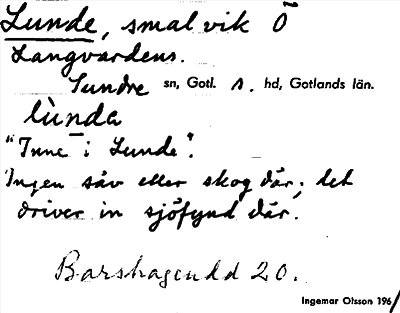 Lunde, smal vik Ö
Langvardens.
Sundre sn, Gotl. S. hd, Gotlands län.
lùnda
"Inne i Lunde".
Ingen säv eller skog där; det
driver in sjöfynd där.
Barshageudd 20.
Ingemar Olsson 1961